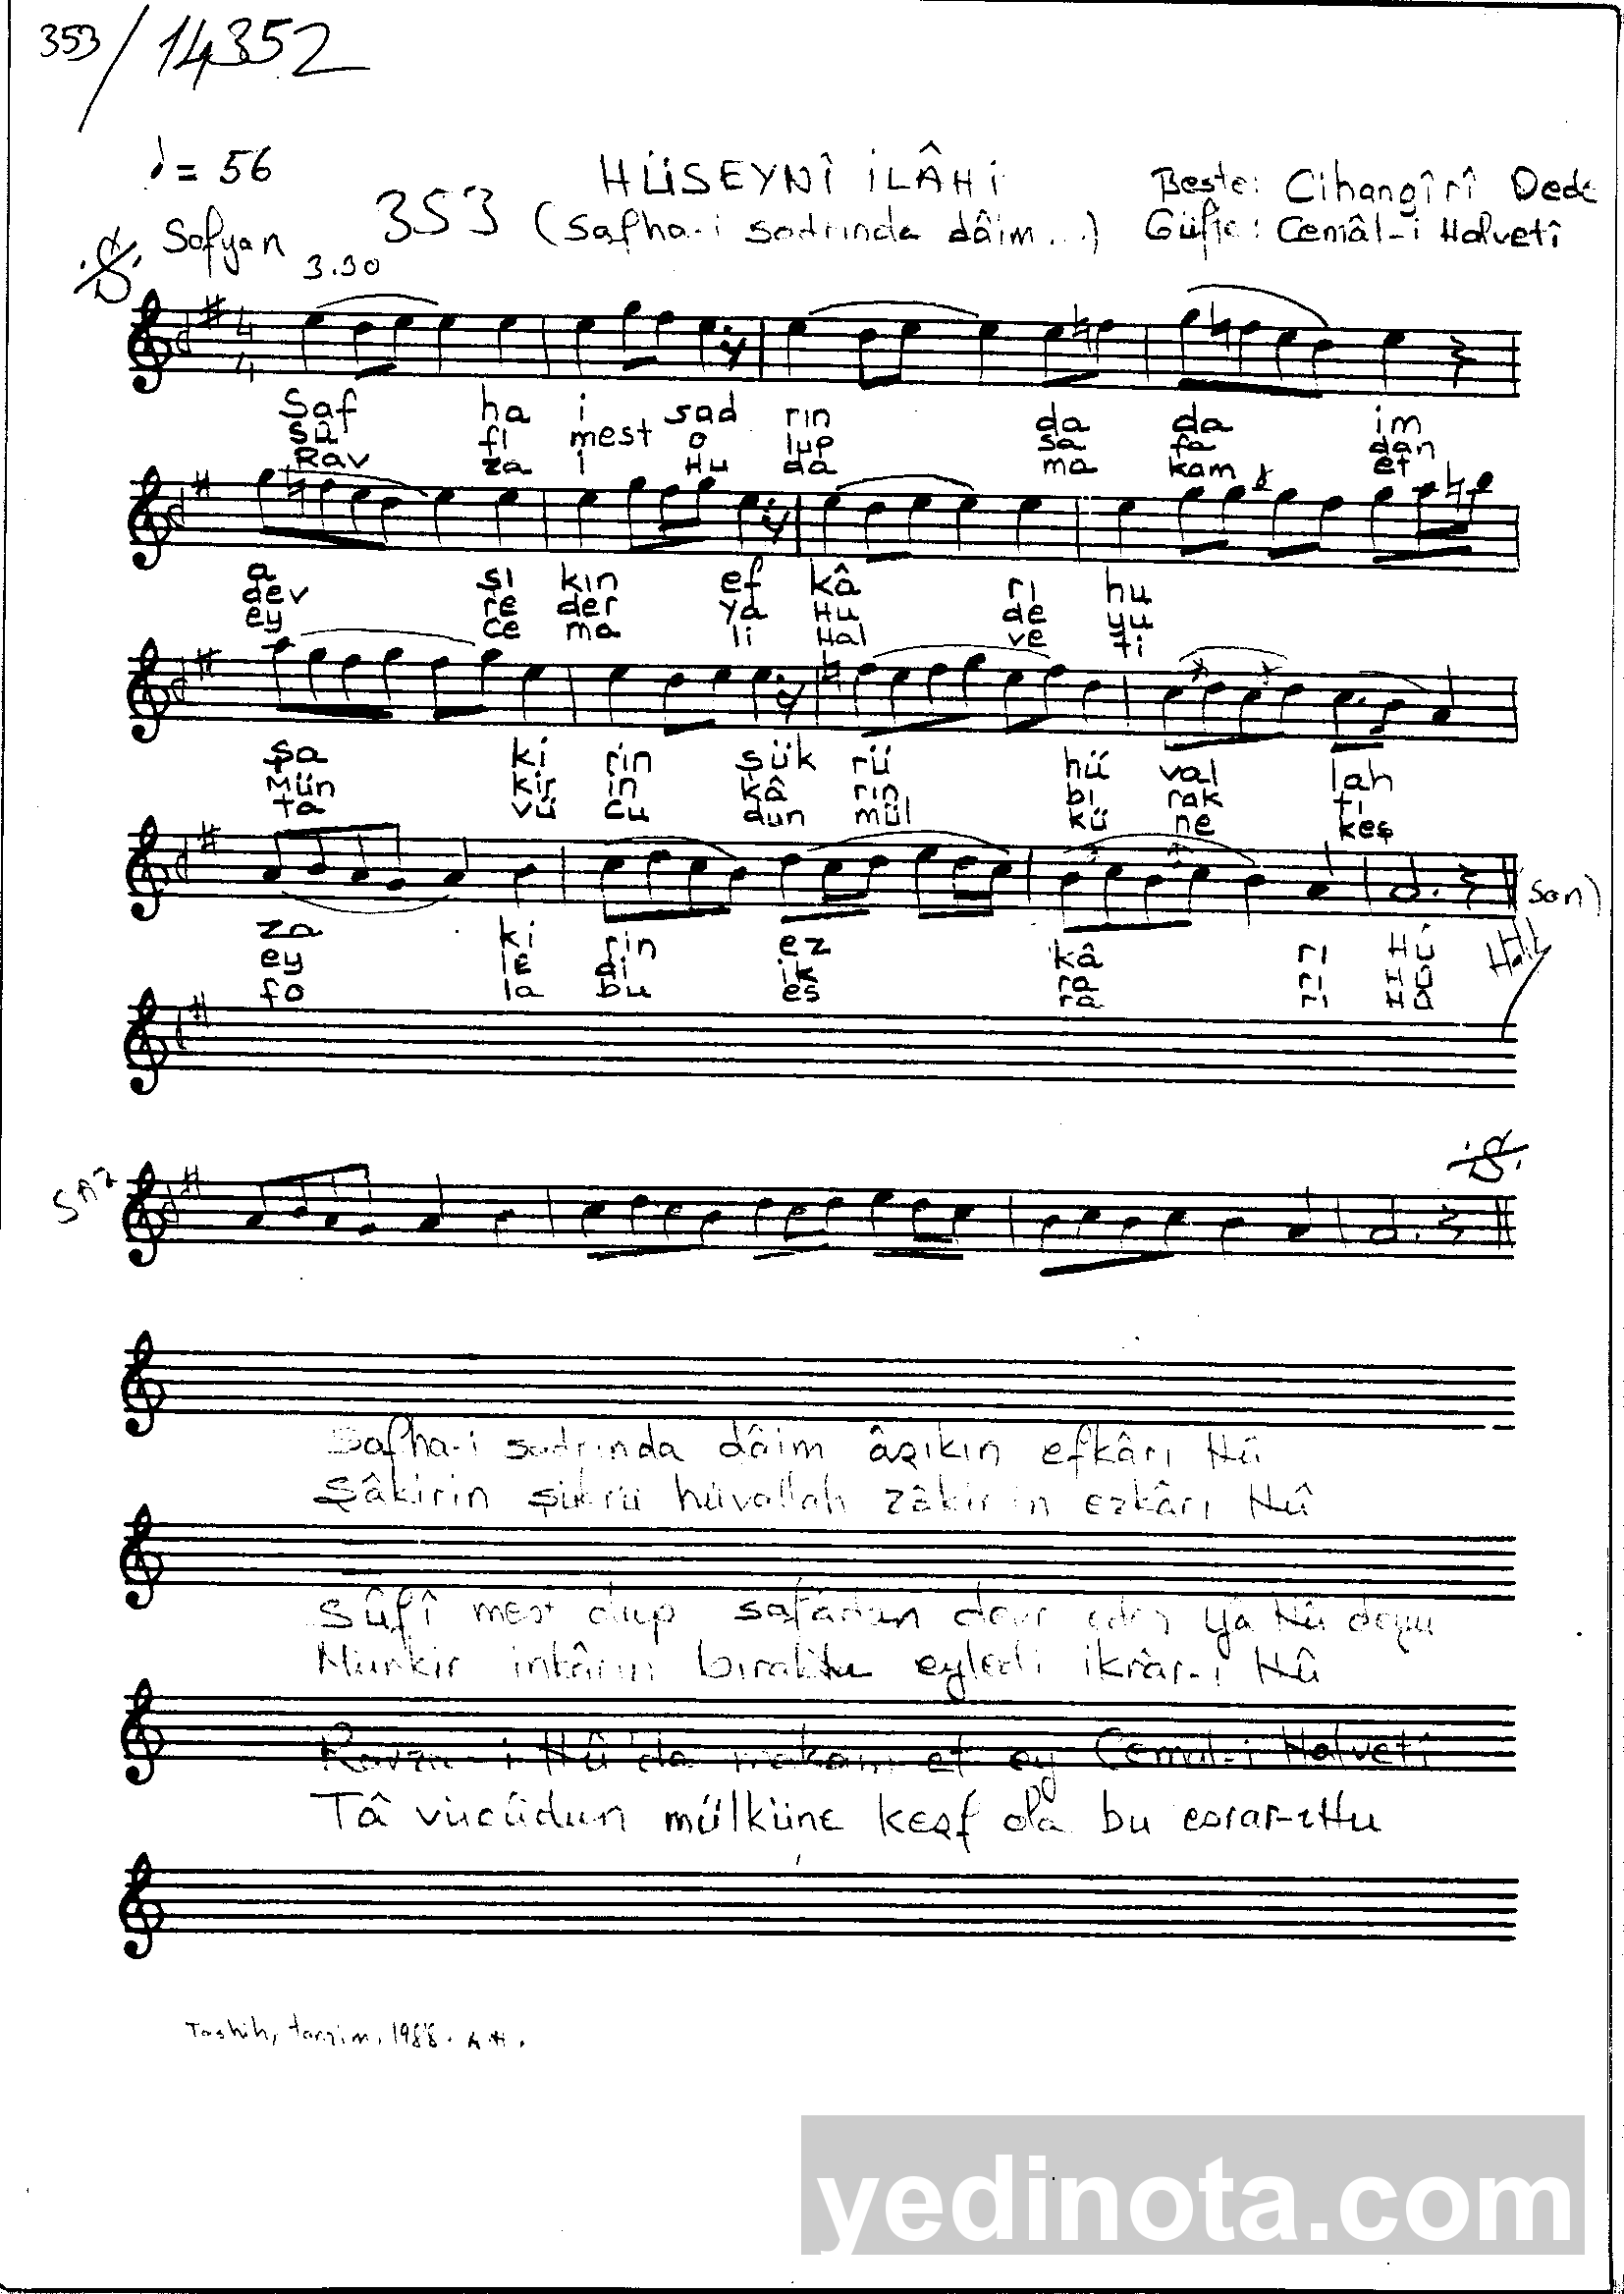 353/14352
♩ = 56
HÜSEYNÎ İLÂHİ
Beste: Cihangîrî Dede
Sofyan
353
(Safha-i sadrında dâim...)
Güfte: Cemâl-i Halvetî
3.30
4
4
Saf ha i sad rın da da im
sû fi mest o lup sa fa dan
Rav za i Hu da ma kam et
a şı kın ef kâ rı hu
dev re der ya Hu de yu
ey ce ma li Hal ve ti
şa ki rin şük rü hü val lah
mün kir in kâ rın bı rak tı
ta vü cu dun mül kü ne keş
za ki rin ez kâ rı Hû
ey le di ik ra rı Hû
fo la bu es ra rı Hû
(Son)
SAZ
Safha-i sadrında dâim âşıkın efkârı Hû
Şâkirin şükrü hüvallah zâkirin ezkârı Hû
Sûfî mest olup safâdan devr eder yâ Hû deyu
Münkir inkârın bıraktı eyledi ikrâr-ı Hû
Ravza-i Hû'da makam et ey Cemal-i Halvetî
Tâ vücûdun mülküne keşf ola bu esrar-ı Hu
Tashih, tanzim. 1988.
yedinota.com